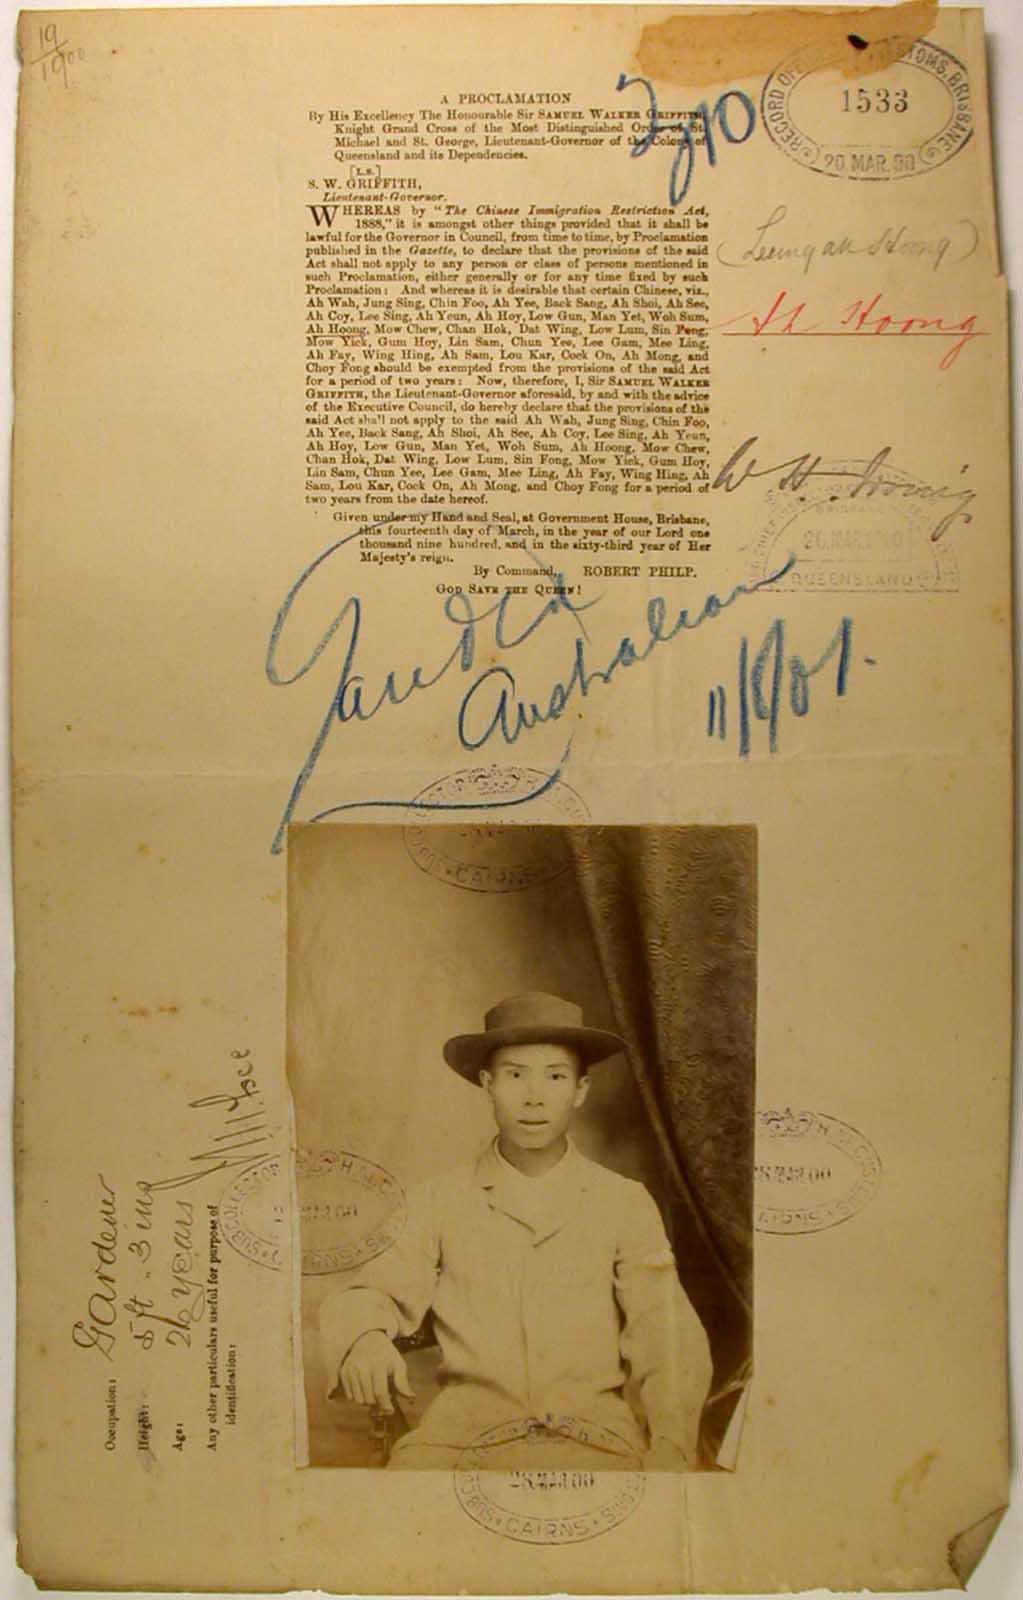 19
1900
A PROCLAMATION
By His Excellency The Honourable Sir SAMUEL WALKER GRIFFITH,
Knight Grand Cross of the Most Distinguished Order of St.
Michael and St. George, Lieutenant-Governor of the Colony of
Queensland and its Dependencies.
[L.S.]
S. W. GRIFFITH,
Lieutenant-Governor.
WHEREAS by "The Chinese Immigration Restriction Act,
1888," it is amongst other things provided that it shall be
lawful for the Governor in Council, from time to time, by Proclamation
published in the Gazette, to declare that the provisions of the said
Act shall not apply to any person or class of persons mentioned in
such Proclamation, either generally or for any time fixed by such
Proclamation: And whereas it is desirable that certain Chinese, viz.,
Ah Wah, Jung Sing, Chin Foo, Ah Yee, Back Sang, Ah Shoi, Ah See,
Ah Coy, Lee Sing, Ah Yeun, Ah Hoy, Low Gun, Man Yet, Woh Sum,
Ah Hoong, Mow Chew, Chan Hok, Dat Wing, Low Lum, Sin Fong,
Mow Yick, Gum Hoy, Lin Sam, Chun Yee, Lee Gam, Mee Ling,
Ah Fay, Wing Hing, Ah Sam, Lou Kar, Cock On, Ah Mong, and
Choy Fong should be exempted from the provisions of the said Act
for a period of two years: Now, therefore, I, Sir SAMUEL WALKER
GRIFFITH, the Lieutenant-Governor aforesaid, by and with the advice
of the Executive Council, do hereby declare that the provisions of the
said Act shall not apply to the said Ah Wah, Jung Sing, Chin Foo,
Ah Yee, Back Sang, Ah Shoi, Ah See, Ah Coy, Lee Sing, Ah Yeun,
Ah Hoy, Low Gun, Man Yet, Woh Sum, Ah Hoong, Mow Chew,
Chan Hok, Dat Wing, Low Lum, Sin Fong, Mow Yick, Gum Hoy,
Lin Sam, Chun Yee, Lee Gam, Mee Ling, Ah Fay, Wing Hing, Ah
Sam, Lou Kar, Cock On, Ah Mong, and Choy Fong for a period of
two years from the date hereof.
Given under my Hand and Seal, at Government House, Brisbane,
this fourteenth day of March, in the year of our Lord one
thousand nine hundred, and in the sixty-third year of Her
Majesty's reign.
By Command, ROBERT PHILP.
GOD SAVE THE QUEEN!
RECORD CUSTOMS, BRISBANE
1533
20. MAR. 00
(Leung ah Hoong)
Ah Hoong
W H Irving
BRISBANE
QUEENSLAND
Landed
Australian
11/1/01.
SUB COLLECTOR H.M. CUSTOMS
CAIRNS
Occupation: Gardener
Height: 5 ft. 3 ins
Age: 26 years
Any other particulars useful for purpose of
identification:
SUB COLLECTOR H.M. CUSTOMS
MAR.00
CAIRNS
H.M. CUSTOMS
28 MAR.00
CAIRNS
SUB COLLECTOR H.M. CUSTOMS
28 MAR 00
CAIRNS